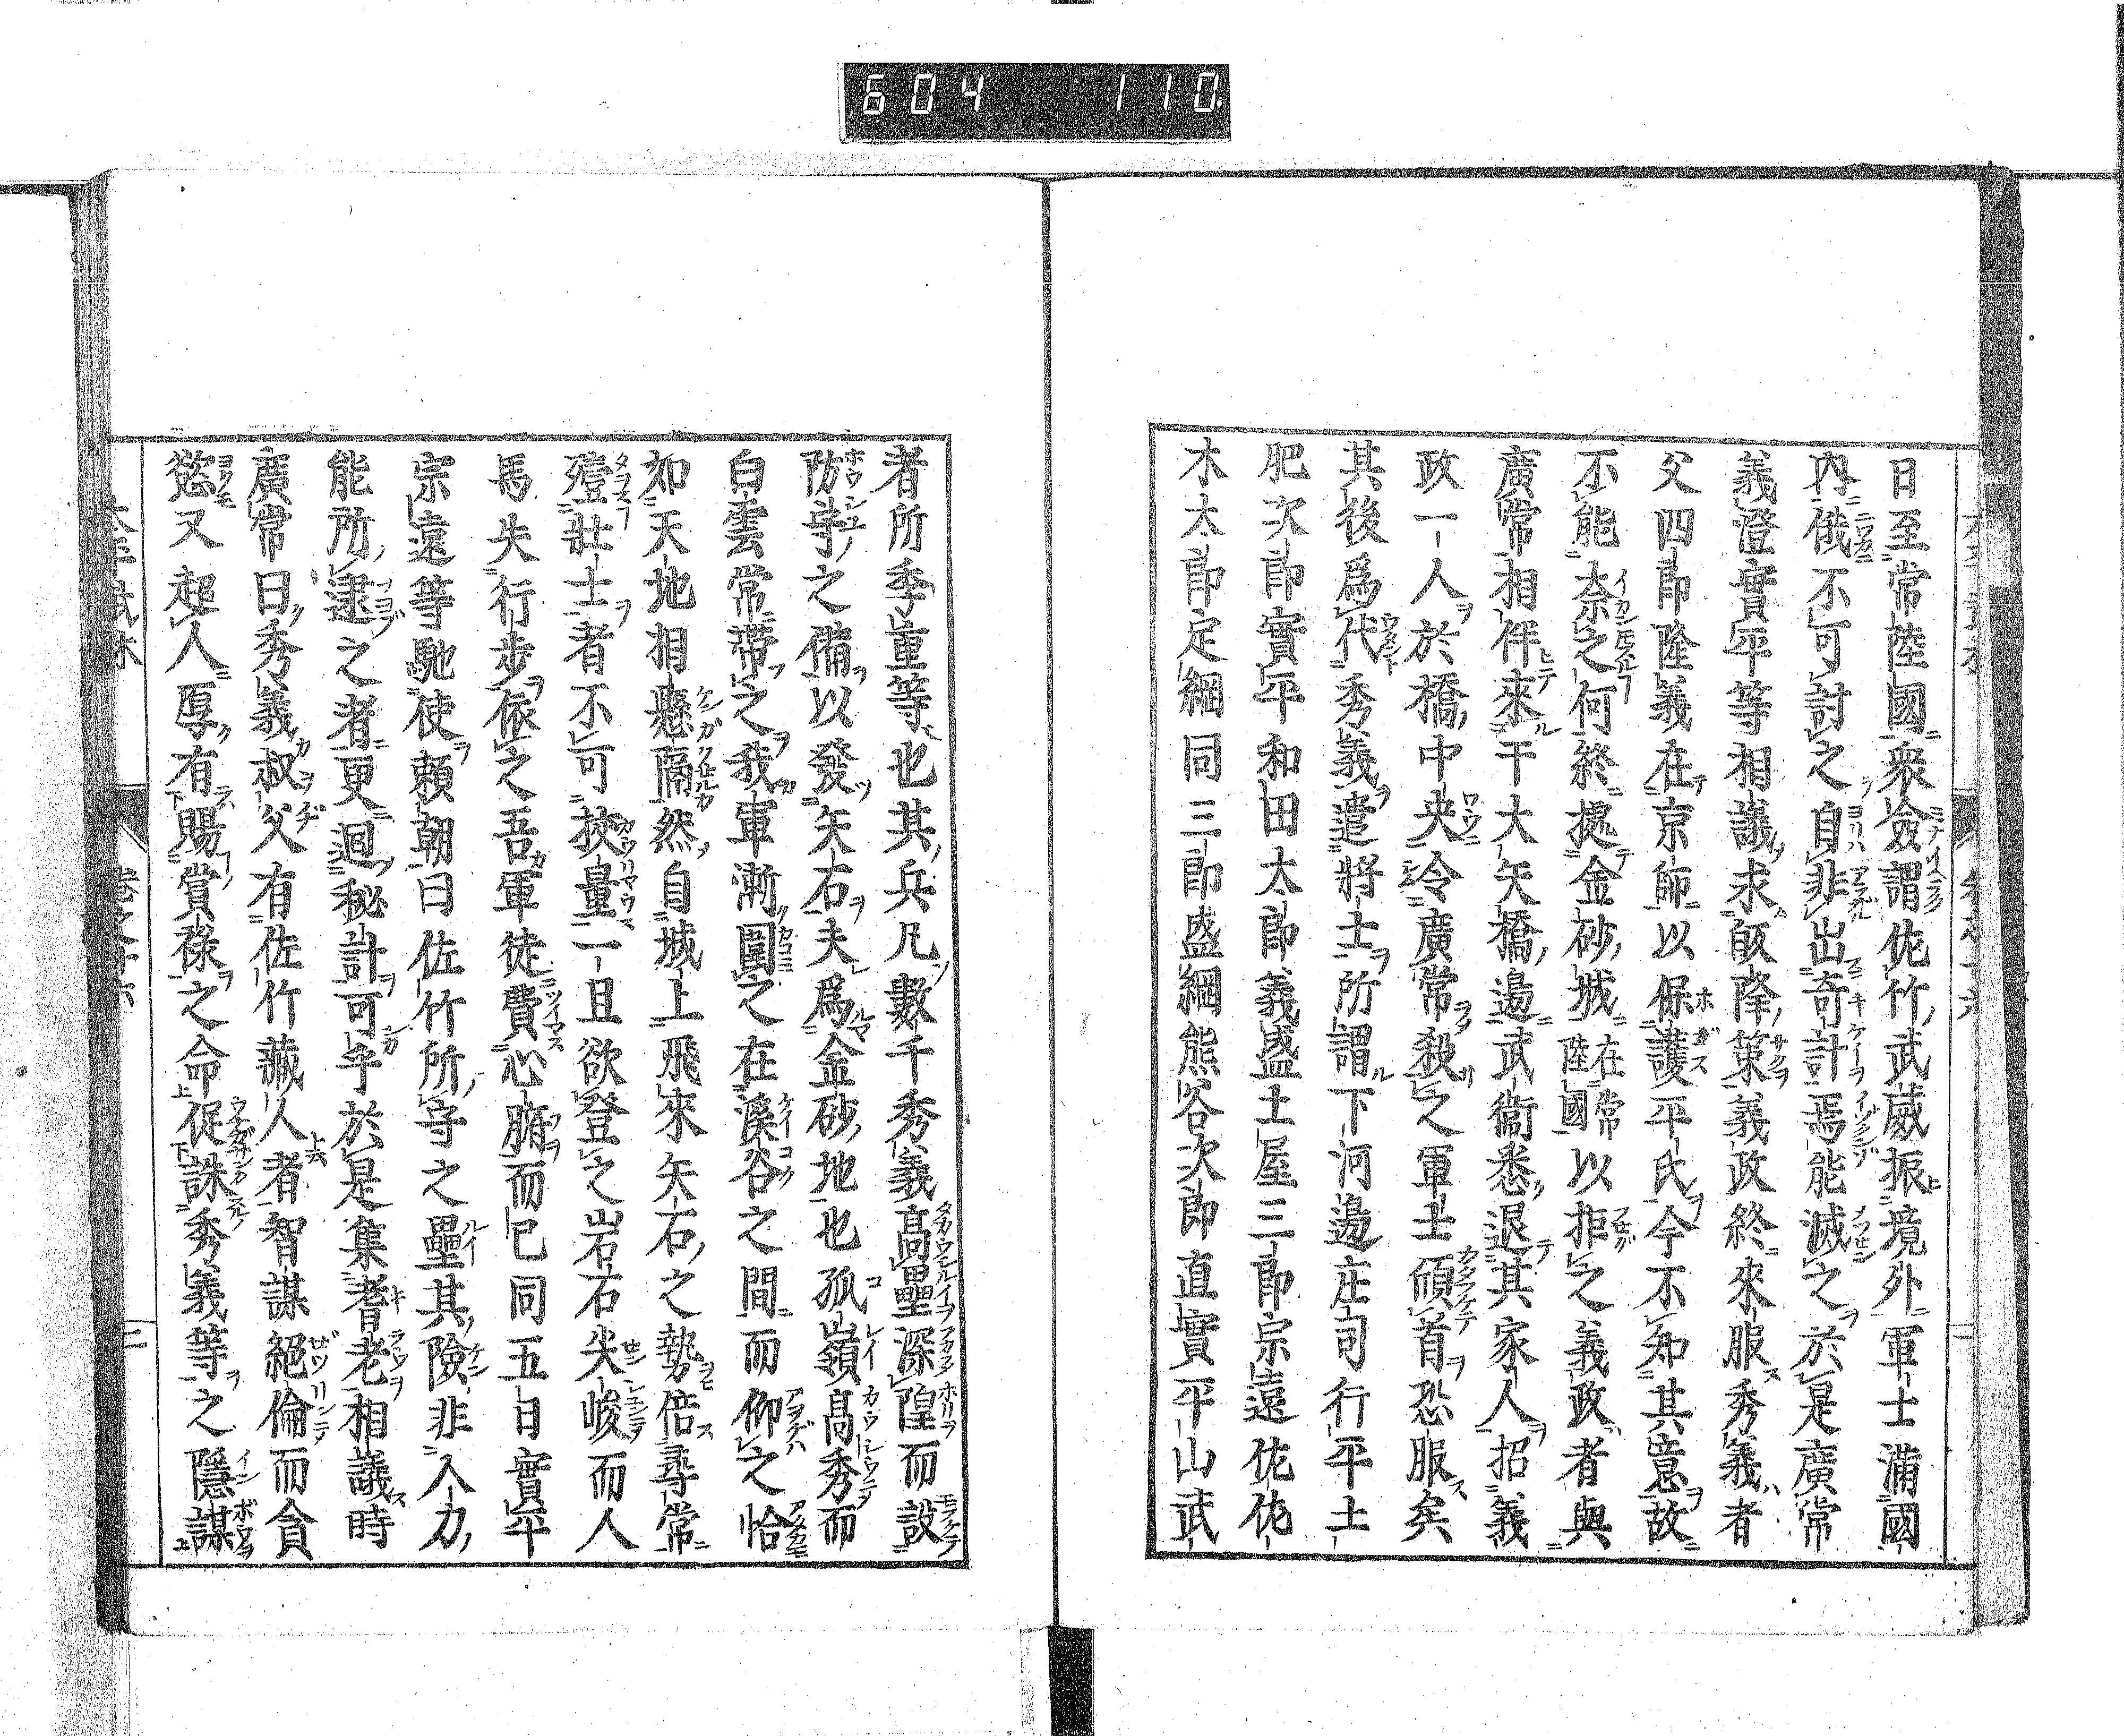 604 110
日至常陸國衆僉謂佐竹武威振境外軍士滿國
内俄不可討之自非出奇計焉能滅之於是廣常
義澄實平等相議求皈降策義政終來服秀義者
父四郎隆義在京師以保護平氏今不知其意故
不能奈之何終據金砂城在常陸國以拒之義政者與
廣常相伴來于大矢橋邊武衞悉退其家人招義
政一人於橋中央令廣常殺之軍士傾首恐服矣
其後爲代秀義遣將士所謂下河邊庄司行平土
肥次郎實平和田太郎義盛土屋三郎宗遠佐佐
木太郎定綱同三郎盛綱熊谷次郎直實平山武
者所季重等也其兵凡數千秀義高壘深隍而設
防守之備以發矢石夫爲金砂地也孤嶺高秀而
白雲常帶之我軍漸圍之在溪谷之間而仰之恰
如天地相懸隔然自城上飛來矢石之勢倍尋常
殪壯士者不可挍量一旦欲登之岩石尖峻而人
馬失行步依之吾軍徒費心腑而已同五日實平
宗遠等馳使賴朝曰佐竹所守之壘其險非人力
能所逮之者更迴秘計可乎於是集耆老相議時
廣常曰秀義叔父有佐竹藏人者智謀絕倫而貪
慾又超人厚有賜賞祿之命促誅秀義等之隱謀